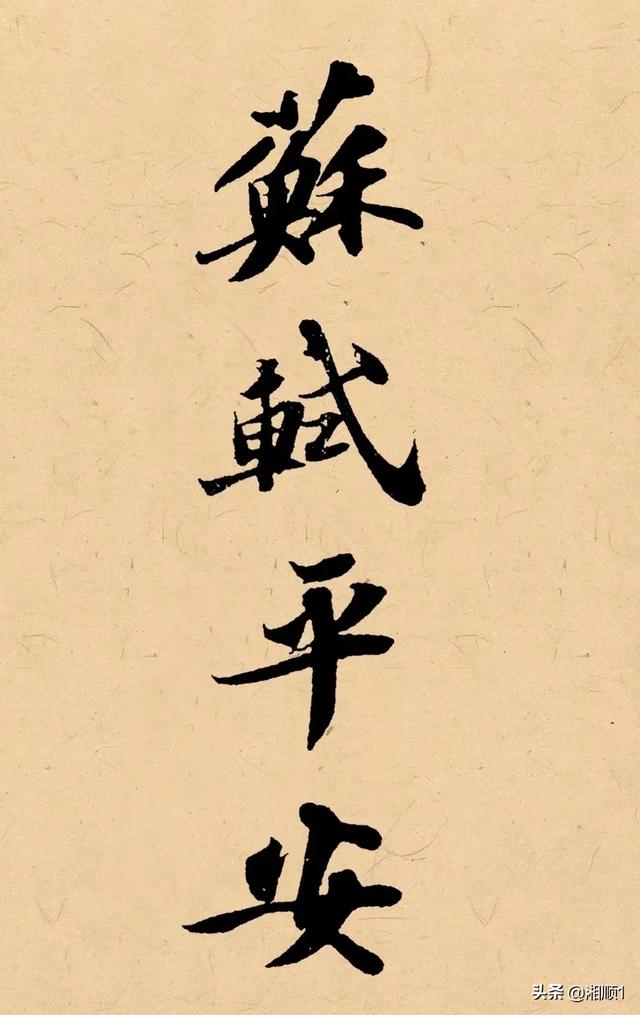 蘇軾平安
头条 @湘顺1